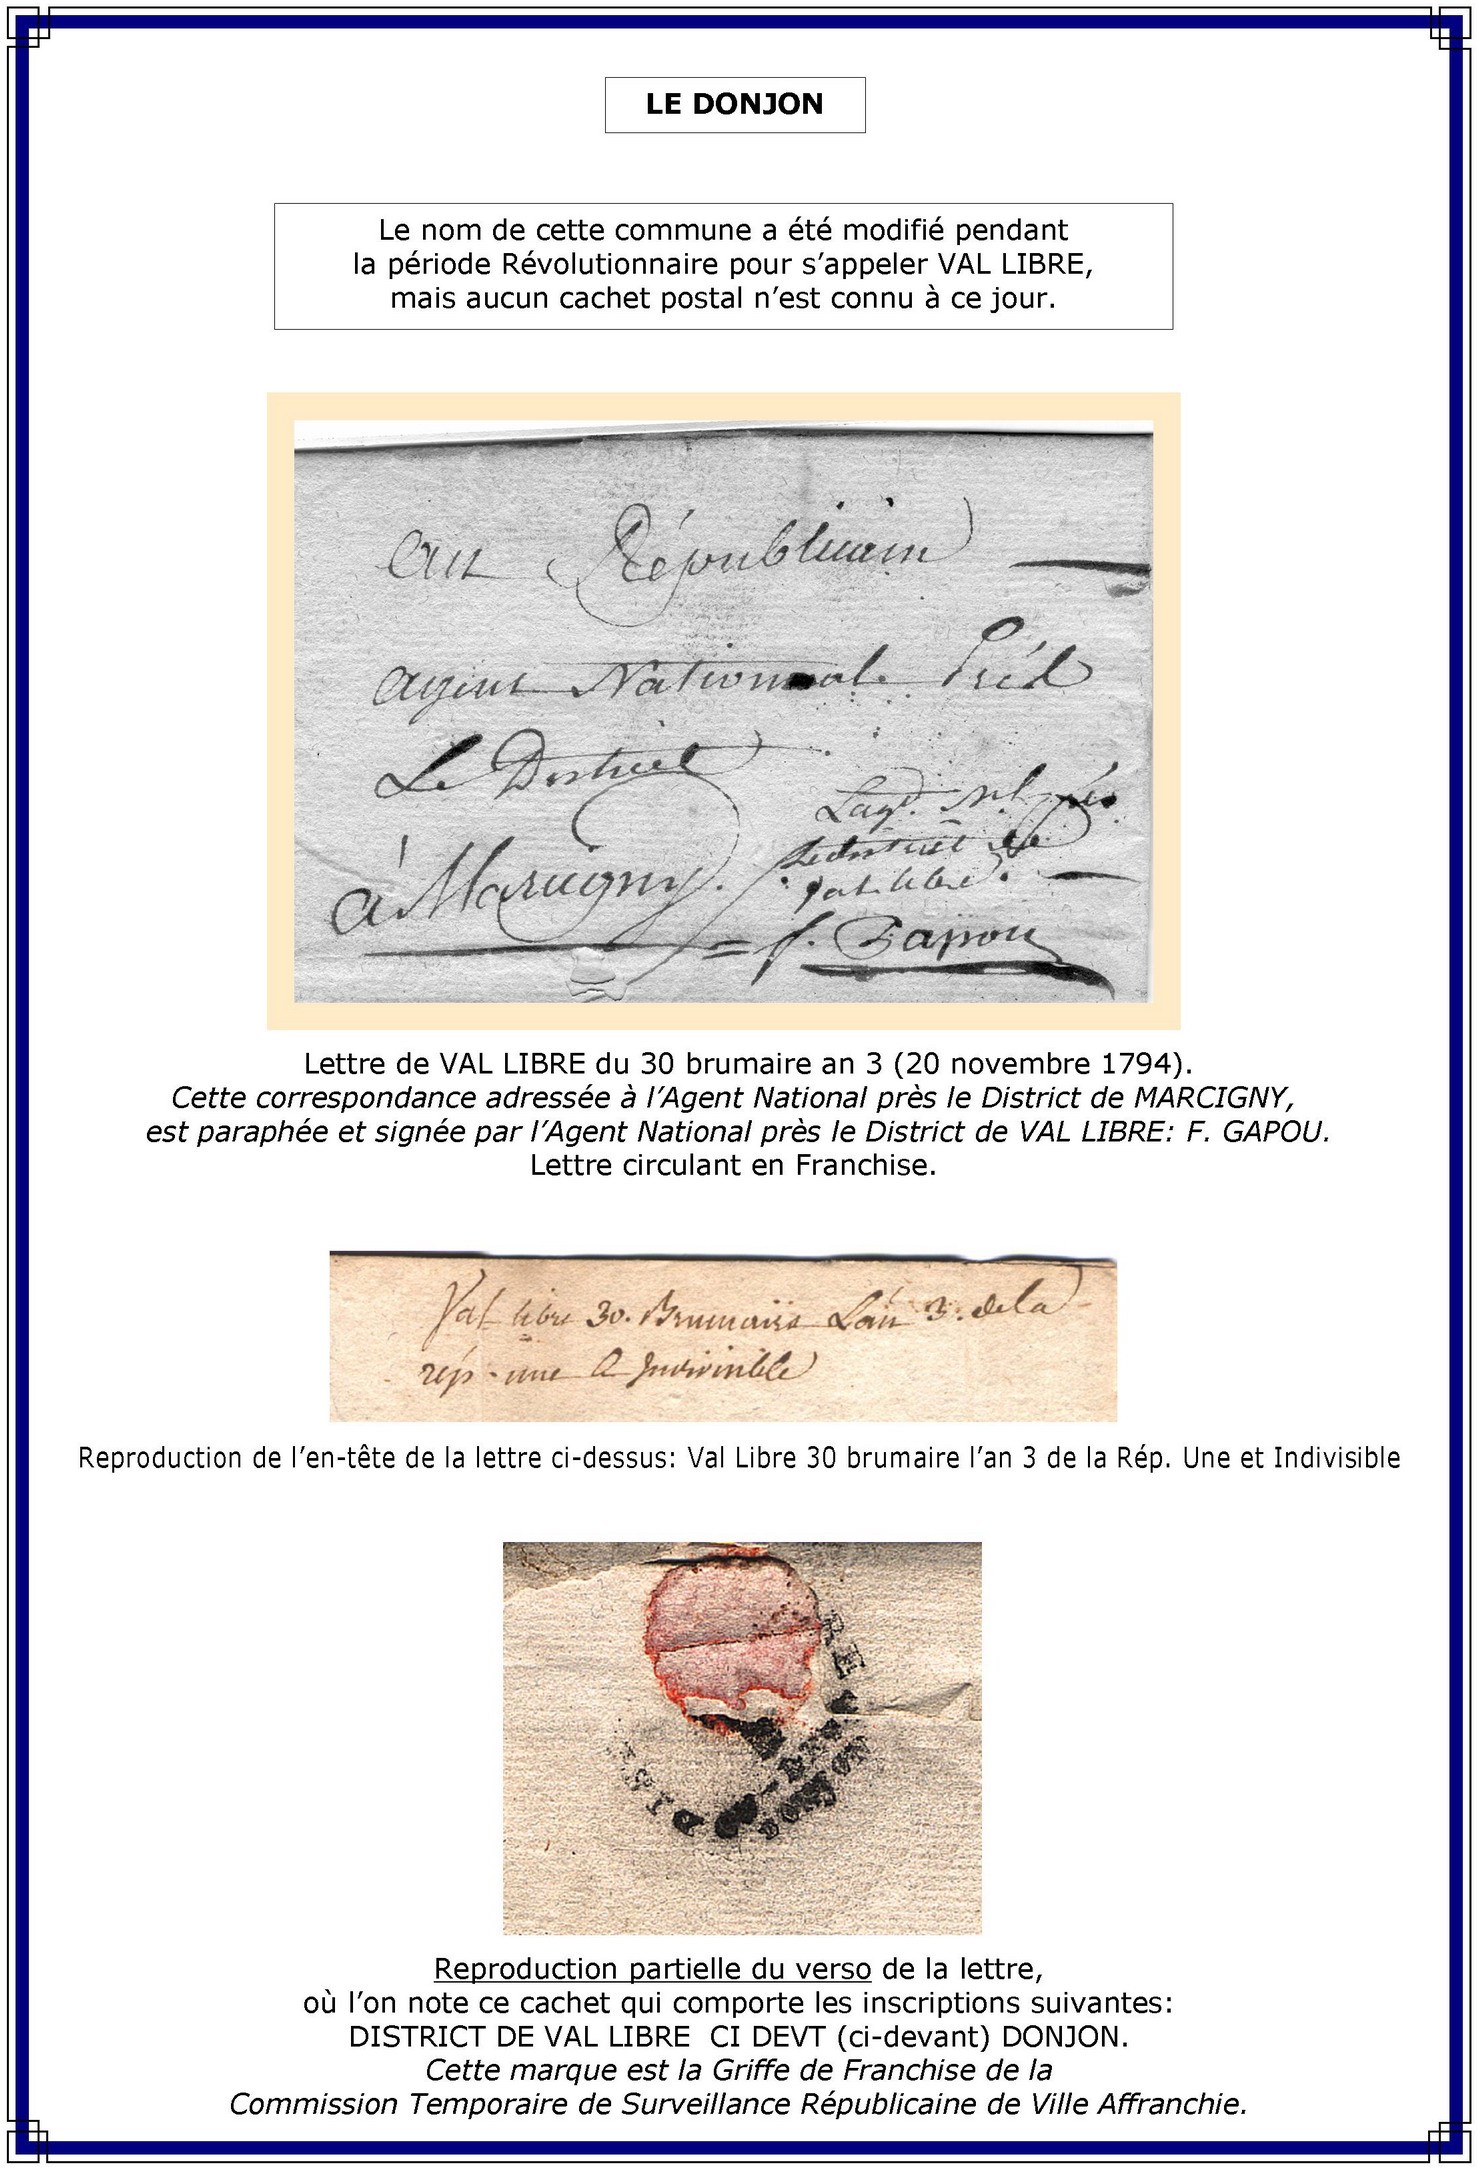 LE DONJON
Le nom de cette commune a été modifié pendant
la période Révolutionnaire pour s’appeler VAL LIBRE,
mais aucun cachet postal n’est connu à ce jour.
au Républicain
agent National Prés
Le District
à Marcigny.
L'ag.t N.al près
le district de
Val libre.
f. Gapou
Lettre de VAL LIBRE du 30 brumaire an 3 (20 novembre 1794).
Cette correspondance adressée à l’Agent National près le District de MARCIGNY,
est paraphée et signée par l’Agent National près le District de VAL LIBRE: F. GAPOU.
Lettre circulant en Franchise.
Val libre 30. Brumaire L'an 3. de la
rép. une & Indivisible
Reproduction de l’en-tête de la lettre ci-dessus: Val Libre 30 brumaire l’an 3 de la Rép. Une et Indivisible
DONJON
Reproduction partielle du verso de la lettre,
où l’on note ce cachet qui comporte les inscriptions suivantes:
DISTRICT DE VAL LIBRE CI DEVT (ci-devant) DONJON.
Cette marque est la Griffe de Franchise de la
Commission Temporaire de Surveillance Républicaine de Ville Affranchie.